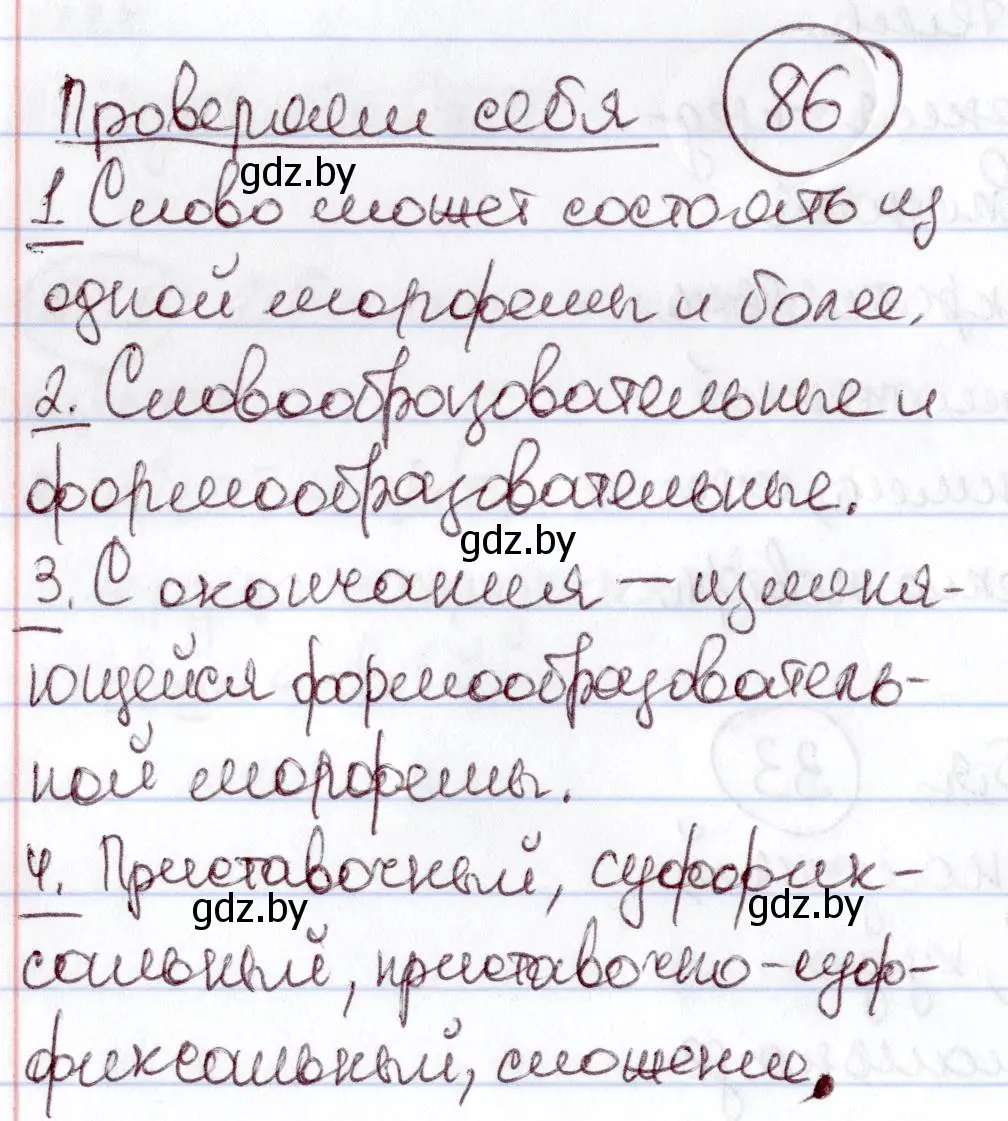 Проверяем себя 86
gdz.by
1 Слово может состоять из
одной морфемы и более.
2. Словообразовательные и
формообразовательные.
gdz.by
3. С окончания — изменя-
ющейся формообразователь-
ной морфемы.
4. Приставочный, суффик-
gdz.by gdz.by
сальный, приставочно-суф-
фиксальный, сложение.